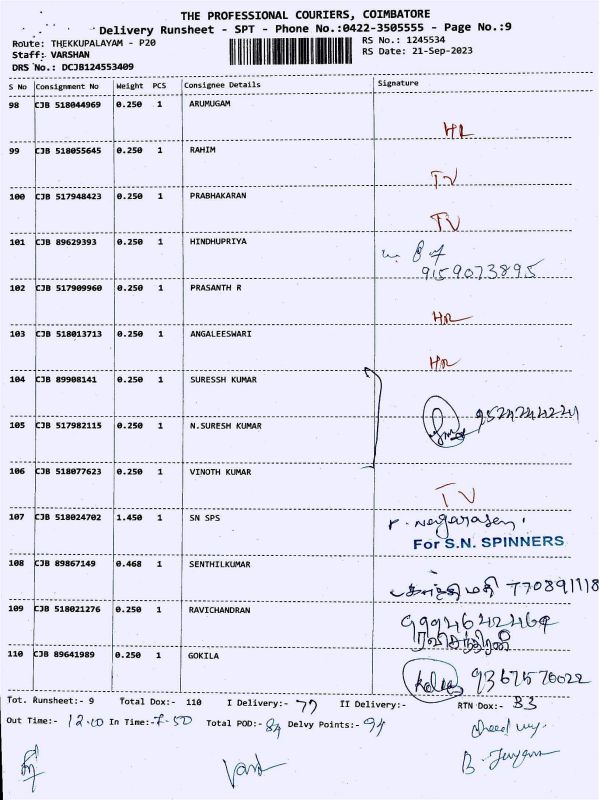 THE PROFESSIONAL COURIERS, COIMBATORE
Delivery Runsheet - SPT - Phone No.:0422-3505555 - Page No.:9
Route: THEKKUPALAYAM - P20 RS No.: 1245534
Staff: VARSHAN RS Date: 21-Sep-2023
DRS No.: DCJB124553409
S No Consignment No Weight PCS Consignee Details Signature
98 CJB 518044969 0.250 1 ARUMUGAM
HR
99 CJB 518055645 0.250 1 RAHIM
TV
100 CJB 517948423 0.250 1 PRABHAKARAN
TV
101 CJB 89629393 0.250 1 HINDHUPRIYA
9159073895
102 CJB 517909960 0.250 1 PRASANTH R
HR
103 CJB 518013713 0.250 1 ANGALEESWARI
HR
104 CJB 89908141 0.250 1 SURESSH KUMAR
105 CJB 517982115 0.250 1 N.SURESH KUMAR
106 CJB 518077623 0.250 1 VINOTH KUMAR
TV
107 CJB 518024702 1.450 1 SN SPS
r. nagarasen.
For S.N. SPINNERS
108 CJB 89867149 0.468 1 SENTHILKUMAR
109 CJB 518021276 0.250 1 RAVICHANDRAN
9994642464
ரவிசந்திரன்
110 CJB 89641989 0.250 1 GOKILA
9367570022
Tot. Runsheet:- 9 Total Dox:- 110 I Delivery:- 77 II Delivery:- RTN Dox:- 33
Out Time:- 12.00 In Time:- 7-50 Total POD:- 84 Delvy Points:- 94